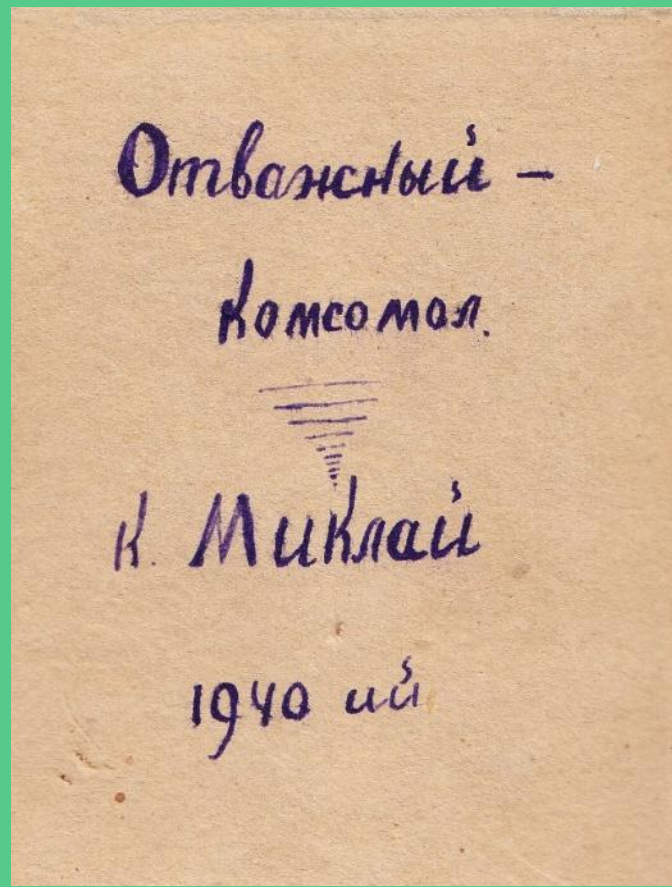 Отважный –
комсомол.
К. Миклай
1940 ий